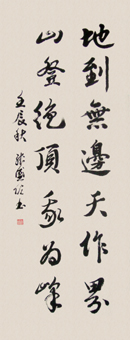 地到無邊天作界
山登絕頂我為峰
壬辰秋